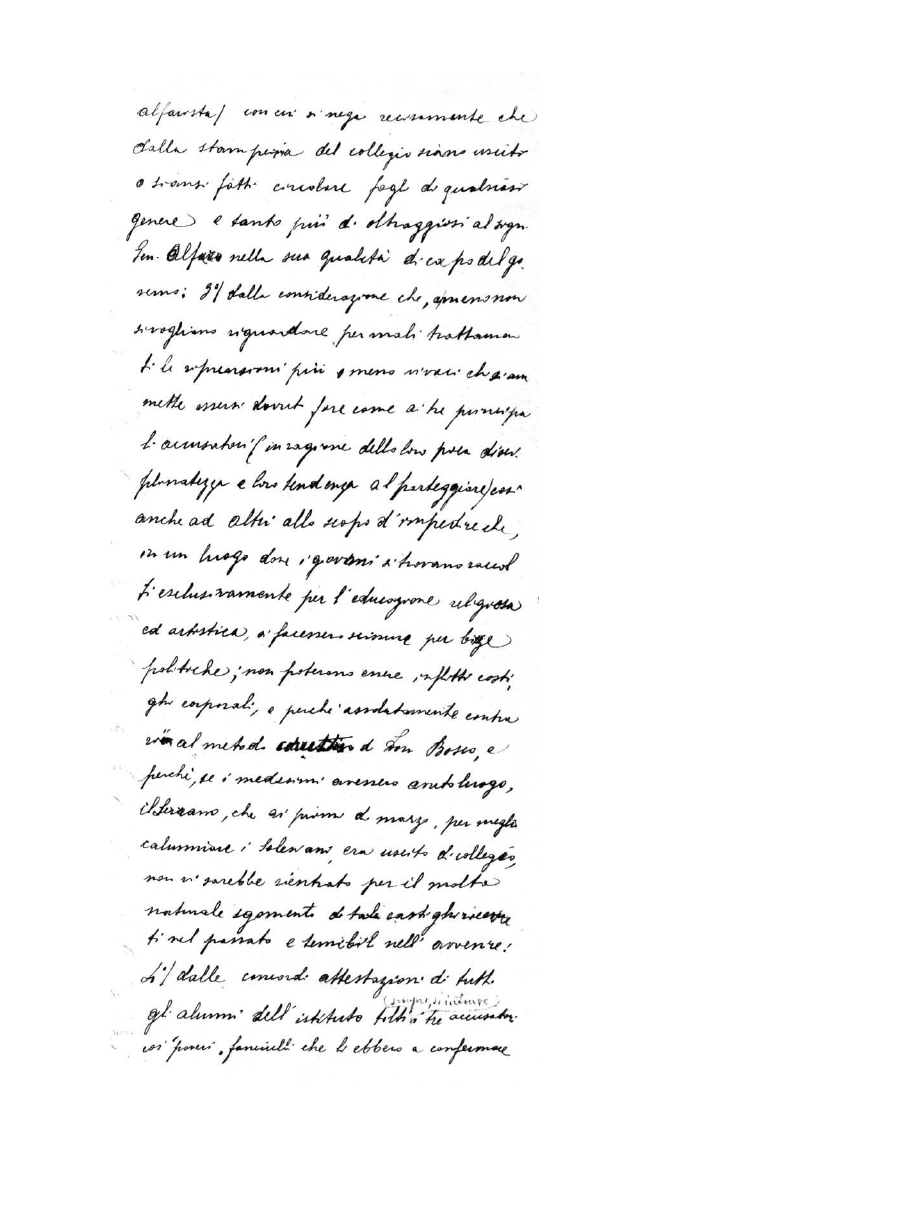 alfarista) con cui si nega recisamente che
dalla stamperia del collegio siano uscito
o siansi fatti circolare fogli di qualsiasi
genere e tanto più di oltraggiosi al sign.
Gen. Alfaro nella sua qualità di capo del go
verno; 3°/ dalla considerazione che, a meno non
si vogliano riguardare per mali trattamen
ti le riprensioni più o meno vivaci che si am
mette essersi dovut fare come ai tre principa
li accusatori (in ragione dello loro poca disci
plinatezza e loro tendenza al parteggiare) così
anche ad altri allo scopo d'impedire che,
in un luogo dove i giovani si trovano raccol
ti esclusivamente per l'educazione religiosa
ed artistica, si facessero scissure per bizze
politiche; non poterono essere inflitti casti
ghi corporali, e perchè assolutamente contra
rii al metodo di Don Bosco, e
perchè, se i medesimi avessero avuto luogo,
il Serrano, che ai primi di marzo, per meglio
calunniare i Salesiani, era uscito di collegio,
non vi sarebbe rientrato per il molto
naturale sgomento di tali castighi ricevu
ti nel passato e temibili nell'avvenire:
4°/ dalle concordi attestazioni di tutti
(sempre, si intende)
gli alunni dell'istituto tolti i tre accusatori
così poveri fanciulli che le ebbero a confermare